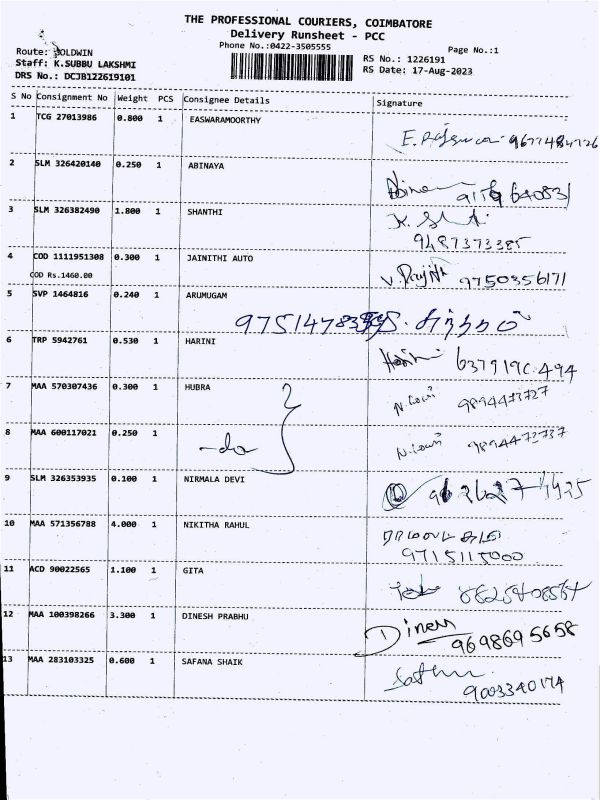 THE PROFESSIONAL COURIERS, COIMBATORE
Delivery Runsheet - PCC
Phone No.:0422-3505555
Page No.:1
Route: GOLDWIN
Staff: K.SUBBU LAKSHMI
DRS No.: DCJB122619101
RS No.: 1226191
RS Date: 17-Aug-2023
S No Consignment No Weight PCS Consignee Details Signature
1 TCG 27013986 0.800 1 EASWARAMOORTHY
2 SLM 326420140 0.250 1 ABINAYA
3 SLM 326382490 1.800 1 SHANTHI
9487373385
4 COD 1111951308 0.300 1 JAINITHI AUTO
COD Rs.1460.00
9750356171
5 SVP 1464816 0.240 1 ARUMUGAM
6 TRP 5942761 0.530 1 HARINI
7 MAA 570307436 0.300 1 HUBRA
8 MAA 600117021 0.250 1 -do
9 SLM 326353935 0.100 1 NIRMALA DEVI
10 MAA 571356788 4.000 1 NIKITHA RAHUL
9715115000
11 ACD 90022565 1.100 1 GITA
12 MAA 100398266 3.300 1 DINESH PRABHU
Dinesh 9698695658
13 MAA 283103325 0.600 1 SAFANA SHAIK
9003340174